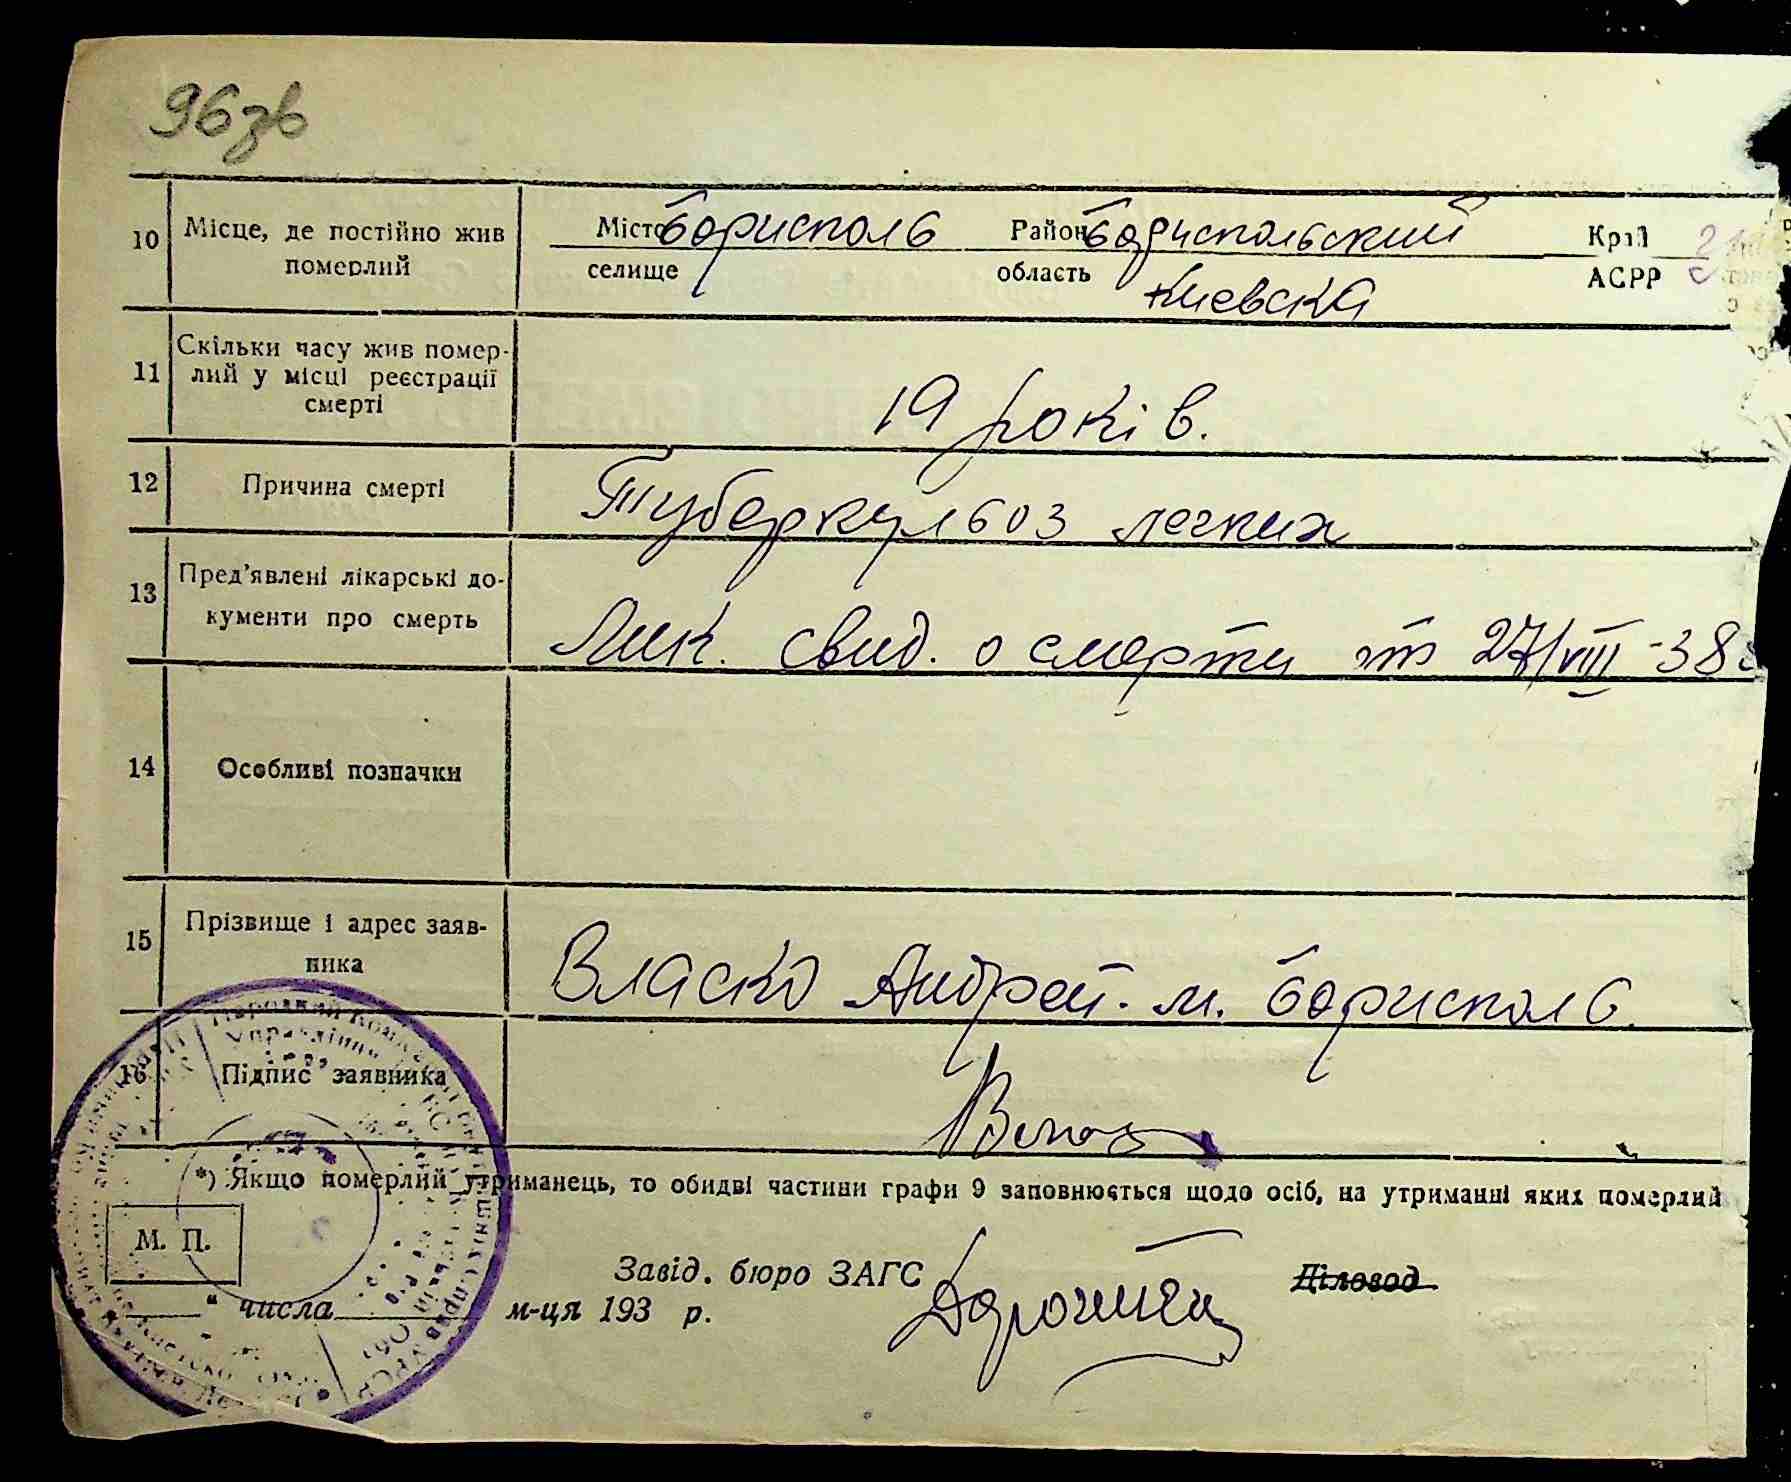 96зв
10 Місце, де постійно жив Місто Борисполь Район Бориспольский Край
померлий селище область Киевска АСРР
11 Скільки часу жив помер-
лий у місці реєстрації
смерті 19 років.
12 Причина смерті Туберкульоз легких
13 Пред'явлені лікарські до-
кументи про смерть Лик. свид. о смерти от 27/VIII-38г
14 Особливі позначки
15 Прізвище і адрес заяв-
ника Власко Андрей. м. Борисполь.
16 Підпис заявника
*) Якщо померлий утриманець, то обидві частини графи 9 заповнюється щодо осіб, на утриманні яких померлий
М. П.
Завід. бюро ЗАГС Діловод
" числа м-ця 193 р.